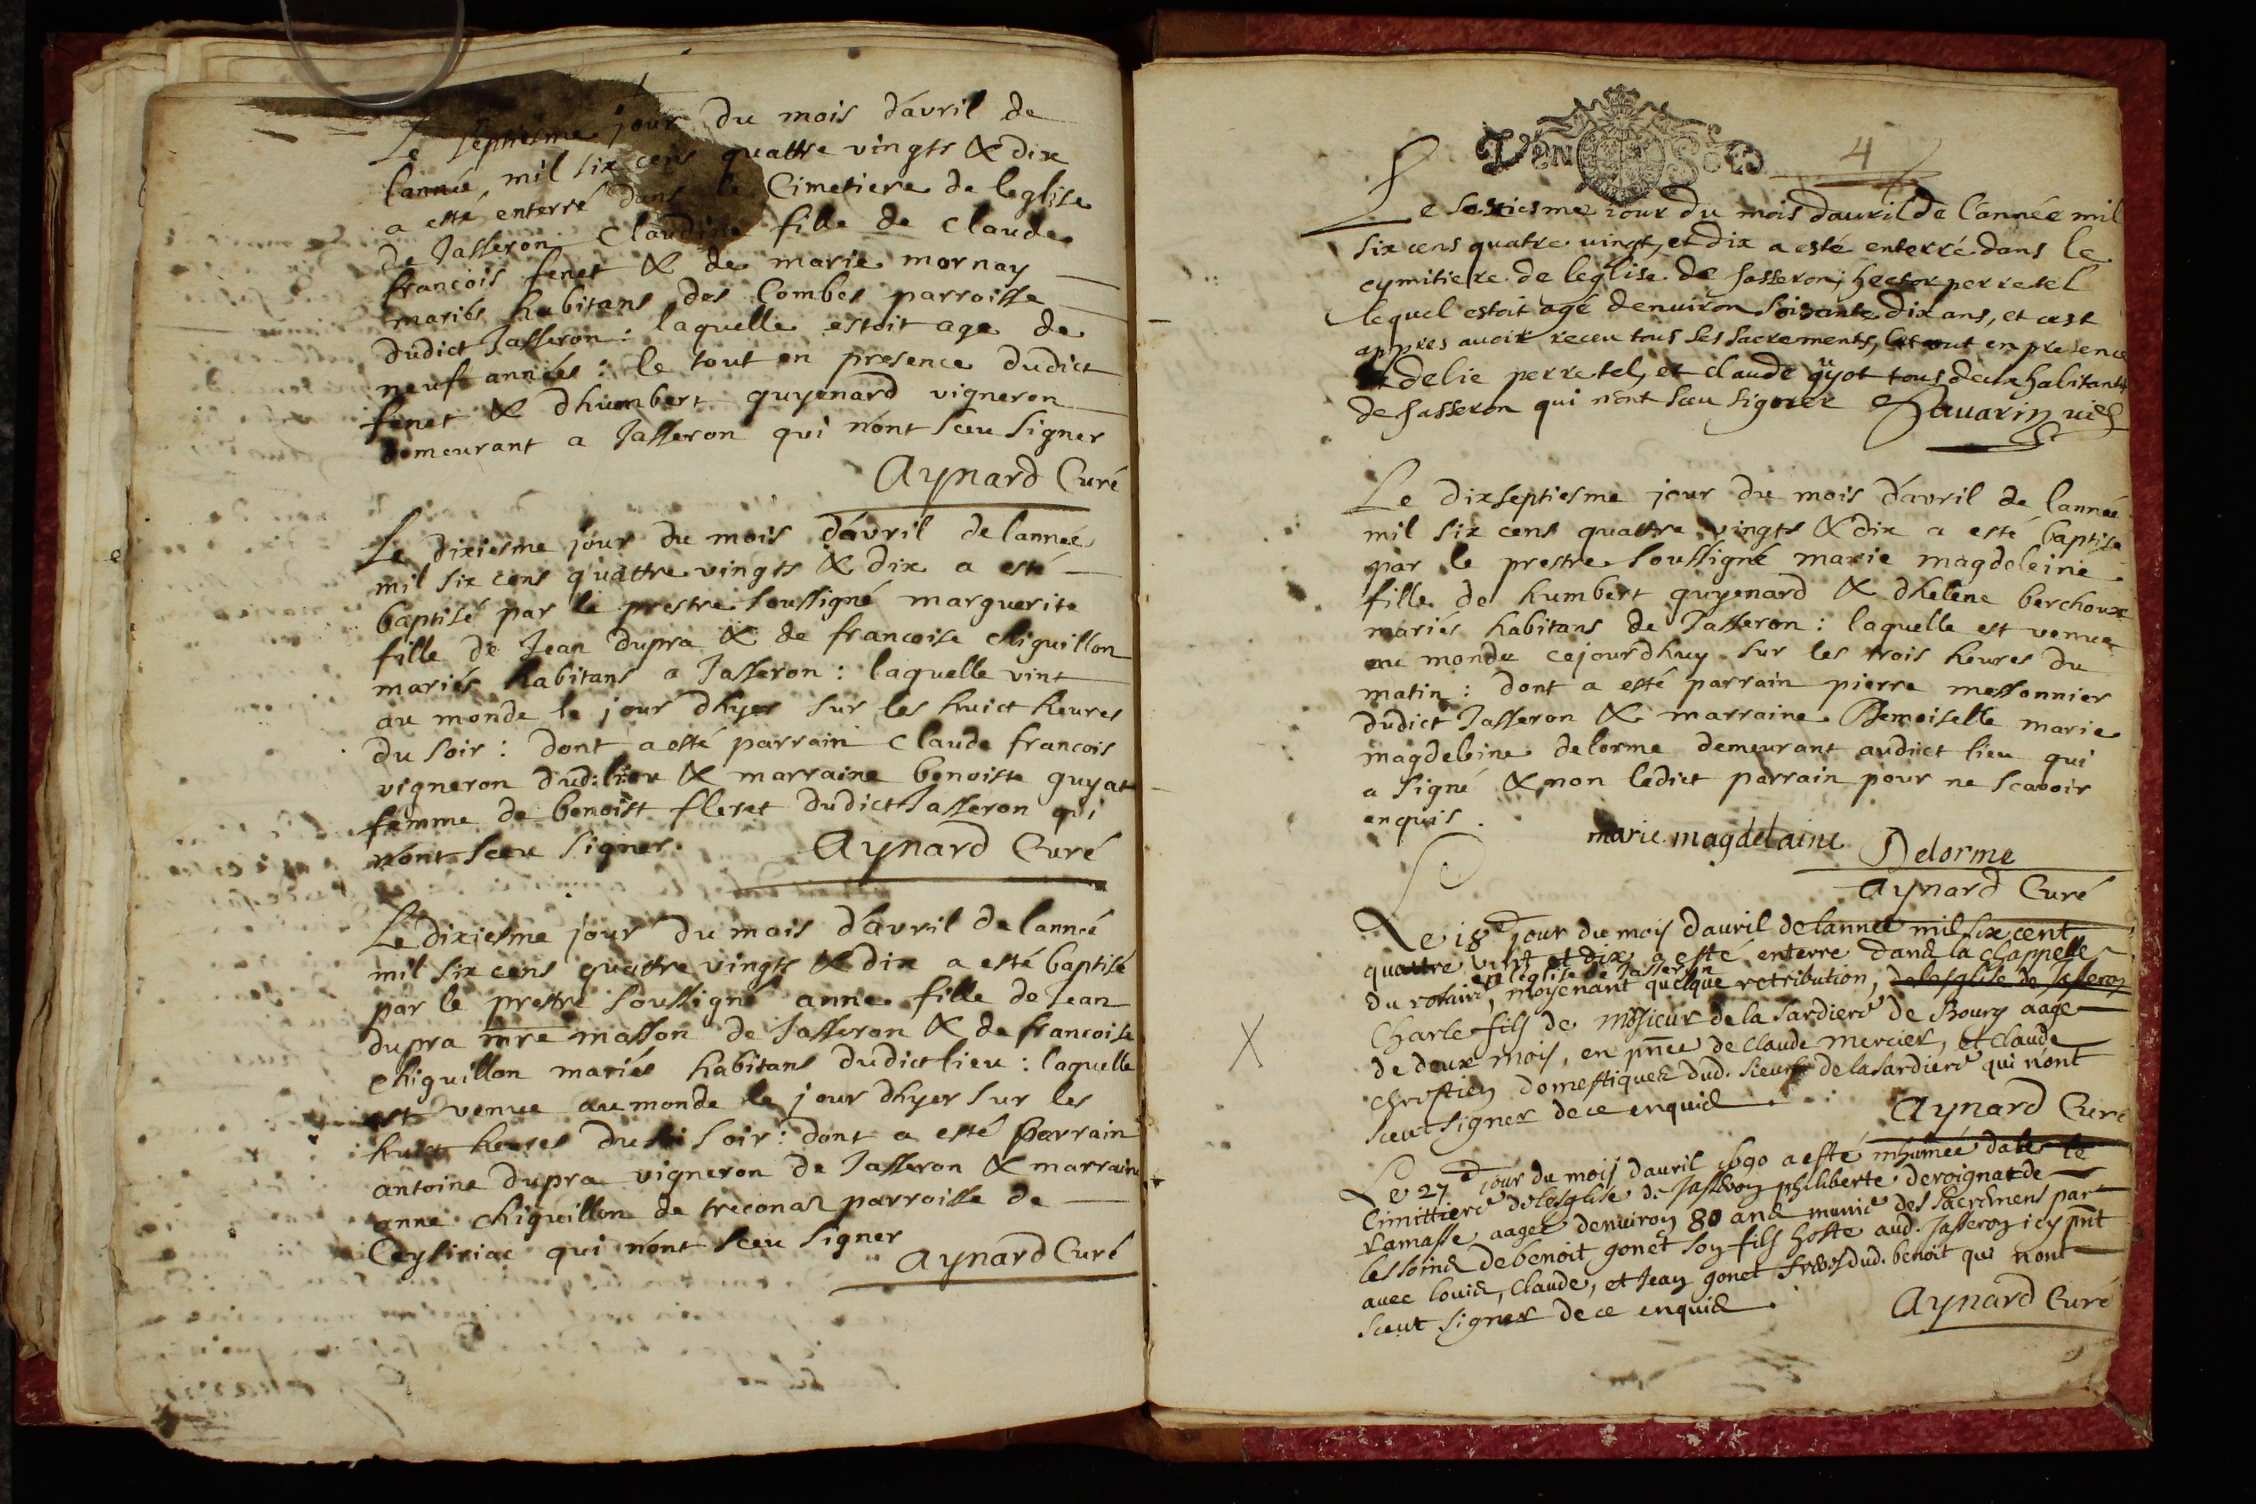 Le septiesme jour du mois d'avril de
l'année, mil six cens quattre vingts & dix
a esté enterré dans le Cimetiere de leglise
de Jasseron Claudine fille de Claude
françois fenet & de marie mornay
mariés habitans des Combes parroisse
dudict Jasseron : laquelle estoit age de
neuf années : le tout en presence dudict
fenet & dhumbert guyenard vigneron
demeurant a Jasseron qui n'ont sceu signer
Aynard Curé
Le dixiesme jour du mois d'avril de lannée
mil six cens quattre vingts & dix a esté
baptisé par le prestre soussigné marguerite
fille de Jean dupra & de francoise chiguillon
mariés habitans a Jasseron : laquelle vint
au monde le jour dhyer sur les huict heures
du soir : dont a esté parrain Claude francois
vigneron dud. lieu & marraine benoiste guyat
femme de benoist fleret dudict Jasseron qui
n'ont sceu signer. Aynard Curé
Le dixiesme jour du mois d'avril de lanneé
mil six cens quattre vingts & dix a esté baptisé
par le prestre soussigné anne fille de Jean
dupra mre masson de Jasseron & de francoise
chiguillon mariés habitans dudict lieu : laquelle
est venue au monde le jour dhyer sur les
huict heures du soir : dont a esté parrain
antoine dupra vigneron de Jasseron & marraine
anne chiguillon de treconas parroisse de
Ceysiriac qui n'ont sceu signer
Aynard Curé
Un Sol 4
Le sexiesme iour du mois dauril de l'année mil
six cens quatre vingt, et dix a esté enterré dans le
cymitiere de leglise de Jasseron, hector perretel
lequel estoit agé denuiron soixante dix ans, et cest
appres auoir receu tous ses sacrements, le tout en presence
delie perretel, et claude guyot tous deux habitants
de Jasseron qui n'ont sceu signer Sauarin vic
Le dixseptiesme jour du mois d'avril de lanneé
mil six cens quattre vingts & dix a esté baptisé
par le prestre soussigné marie magdeleine
fille de humbert guyenard & dhelene berchoux
mariés habitans de Jasseron : laquelle est venue
au monde cejourdhuy sur les trois heures du
matin : dont a esté parrain pierre messonnier
dudict Jasseron & marraine Demoiselle marie
magdeleine delorme demeurant audict lieu qui
a signé & non ledict parrain pour ne scavoir
enquis.
marie magdelaine Delorme
Aynard Curé
Le 18e jour du mois dauril de lannee mil six cent
quattre vint et dix a esté enterre dans la chappelle
en l'eglise de Jasseron
du rosaire, moyenant quelque retribution, de lesglise de Jasseron
Charle fils de monsieur de la Sardiere de Bourg aagé
de deux mois, en pnce de claude mercier, et claude
chrestien domestiques dud. sieur de la Sardiere qui n'ont
sceut signer de ce enquis.
Aynard Curé
X
Le 27e jour du mois dauril 1690 a esté inhumée dans le
Cimittiere de lesglise de Jasseron philiberte deroignat de
ramasse aagée denuiron 80 ans munie des sacremens par
les soins de benoit gonet son fils hoste aud. Jasseron icy pnt
auec louis, claude, et Jean gonet freres dud. benoit qui n'ont
sceut signer de ce enquis. Aynard Curé